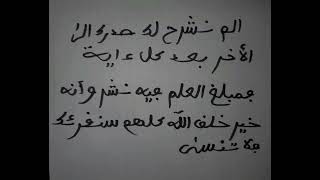 الم نشرح لك صدرك الى
الأخر بعد كل ءاية
فمبلغ العلم فيه بشر وأنه
خير خلق الله كلهم سنقرئك
فلا تنسى